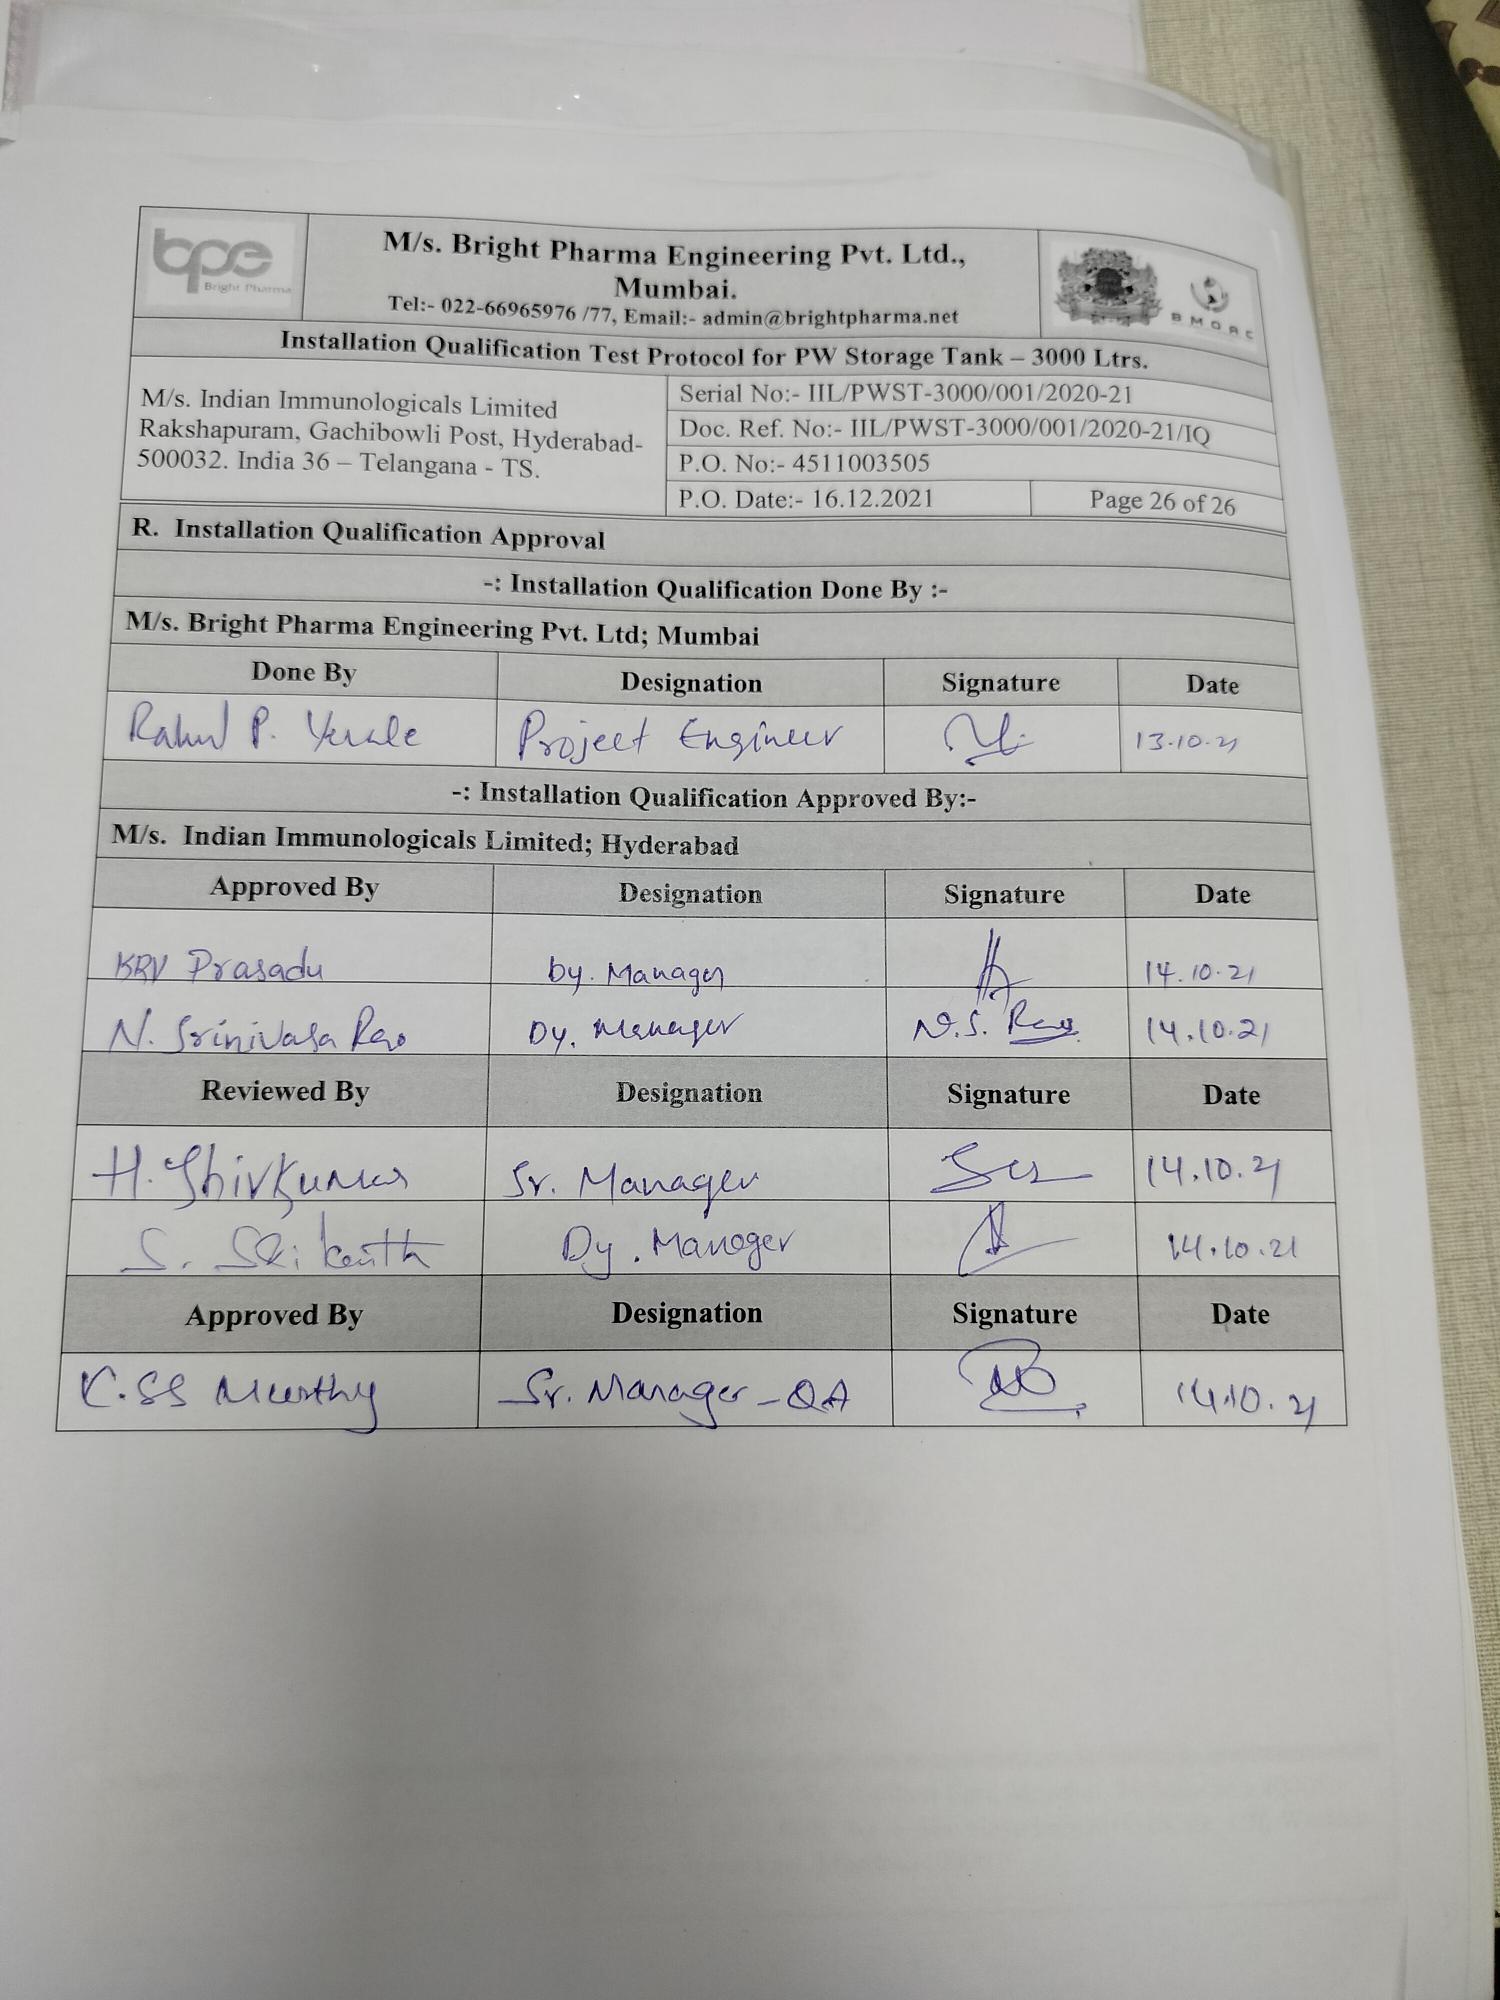 bpe
Bright Pharma
M/s. Bright Pharma Engineering Pvt. Ltd.,
Mumbai.
Tel:- 022-66965976 /77, Email:- admin@brightpharma.net
BMQRC
Installation Qualification Test Protocol for PW Storage Tank – 3000 Ltrs.
M/s. Indian Immunologicals Limited
Rakshapuram, Gachibowli Post, Hyderabad-
500032. India 36 – Telangana - TS.
Serial No:- IIL/PWST-3000/001/2020-21
Doc. Ref. No:- IIL/PWST-3000/001/2020-21/IQ
P.O. No:- 4511003505
P.O. Date:- 16.12.2021 Page 26 of 26
R. Installation Qualification Approval
-: Installation Qualification Done By :-
M/s. Bright Pharma Engineering Pvt. Ltd; Mumbai
Done By Designation Signature Date
Rahul P. Project Engineer 13.10.21
-: Installation Qualification Approved By:-
M/s. Indian Immunologicals Limited; Hyderabad
Approved By Designation Signature Date
KRV Prasadu Dy. Manager 14.10.21
N. Srinivasa Rao Dy. Manager N.S. Rao 14.10.21
Reviewed By Designation Signature Date
H. Shivkumar Sr. Manager 14.10.21
S. Srikanth Dy. Manager 14.10.21
Approved By Designation Signature Date
K.SS Murthy Sr. Manager-QA 14.10.21